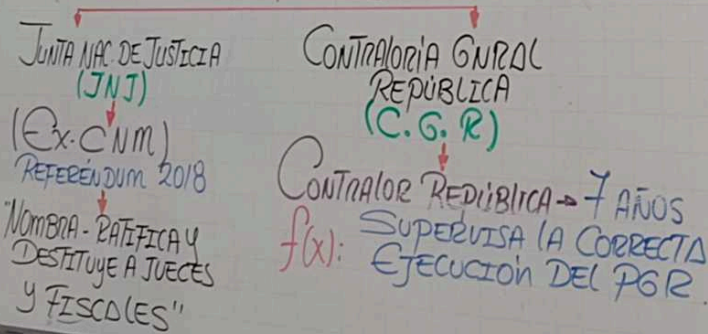 JUNTA NAC. DE JUSTICIA
(JNJ)
(Ex. CNM)
REFERÉNDUM 2018
"NOMBRA - RATIFICA Y
DESTITUYE A JUECES
Y FISCALES"
CONTRALORÍA GNRAL
REPÚBLICA
(C. G. R)
CONTRALOR REPÚBLICA → 7 AÑOS
f(x): SUPERVISA LA CORRECTA
EJECUCIÓN DEL PGR.